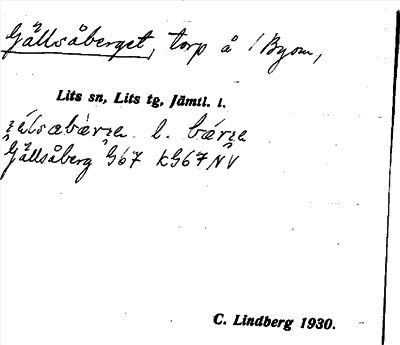 Gållsåberget, torp å Byom,
Lits sn, Lits tg, Jämtl. l.
l. bärʒa
Gållsåberg G67 kG67NV
C. Lindberg 1930.